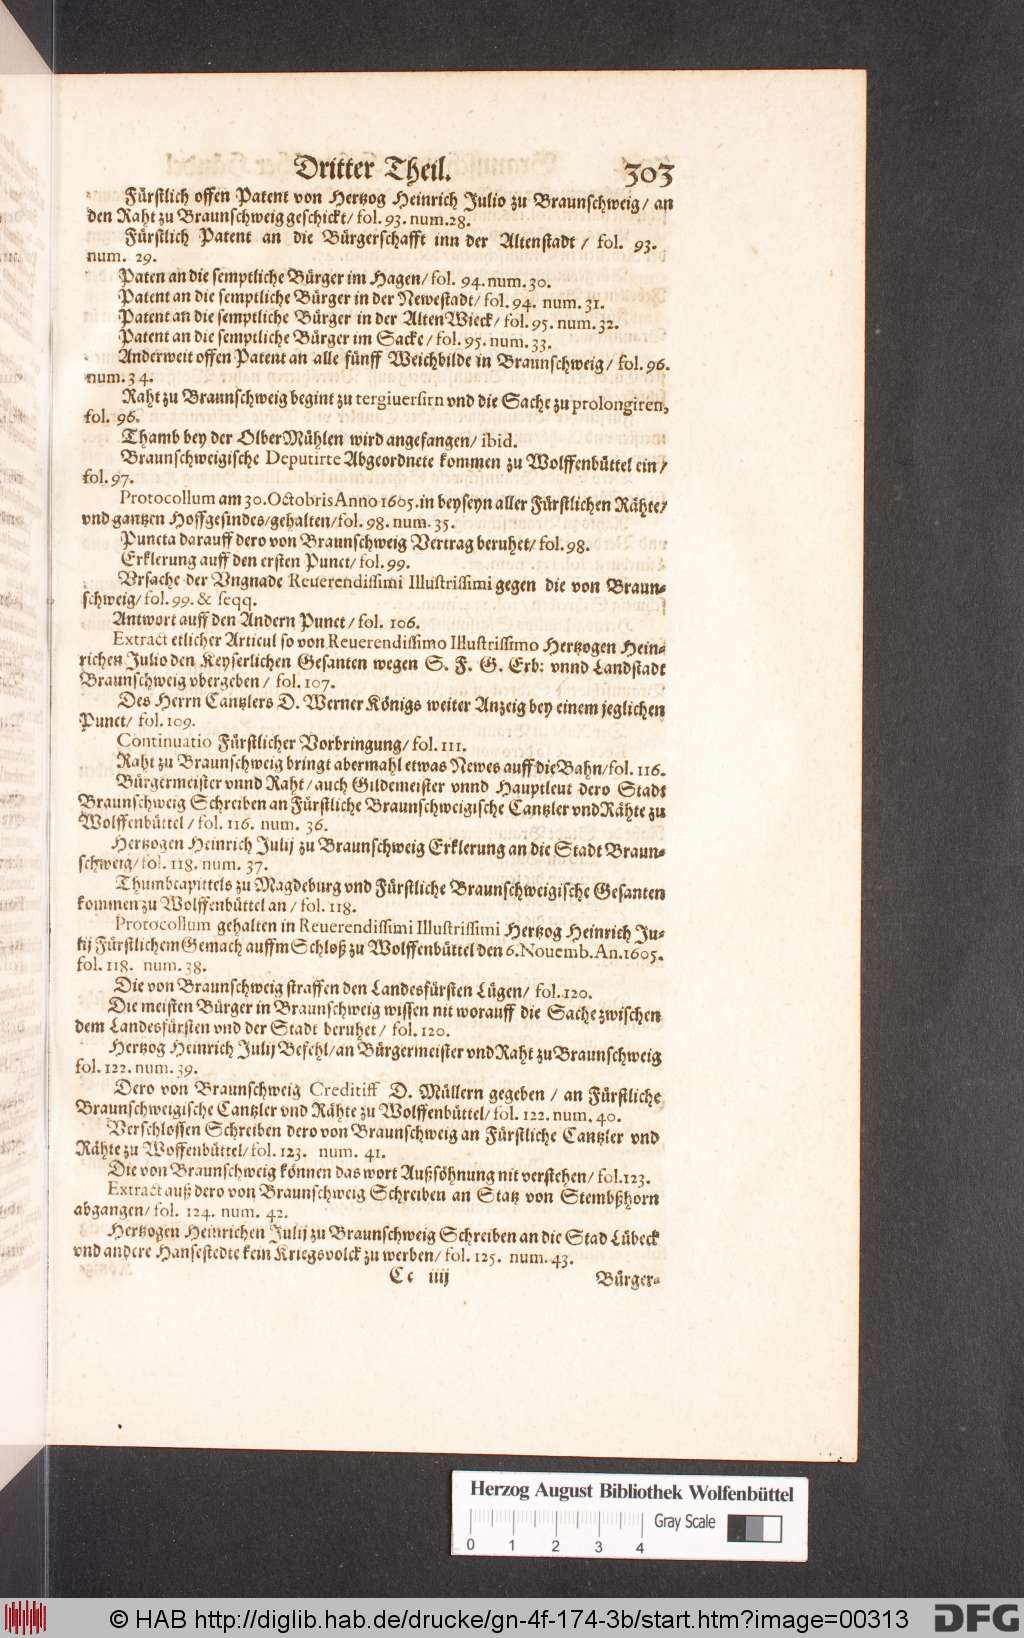 Dritter Theil. 303
Fürstlich offen Patent von Hertzog Heinrich Julio zu Braunschweig/ an
den Raht zu Braunschweig geschickt/ fol. 93. num. 28.
Fürstlich Patent an die Bürgerschafft inn der Altenstadt / fol. 93.
num. 29.
Paten an die semptliche Bürger im Hagen/ fol. 94. num. 30.
Patent an die semptliche Bürger in der Newestadt/ fol. 94. num. 31.
Patent an die semptliche Bürger in der Alten Wieck/ fol. 95. num. 32.
Patent an die semptliche Bürger im Sacke/ fol. 95. num. 33.
Anderweit offen Patent an alle fünff Weichbilde in Braunschweig/ fol. 96.
num. 34.
Raht zu Braunschweig begint zu tergiuersirn vnd die Sache zu prolongiren,
fol. 96.
Thamb bey der Olber Mühlen wird angefangen/ ibid.
Braunschweigische Deputirte Abgeordnete kommen zu Wolffenbüttel ein/
fol. 97.
Protocollum am 30. Octobris Anno 1605. in beyseyn aller Fürstlichen Rähte/
vnd gantzen Hoffgesindes/gehalten/ fol. 98. num. 35.
Puncta darauff dero von Braunschweig Vertrag beruhet/ fol. 98.
Erklerung auff den ersten Punct/ fol. 99.
Vrsache der Vngnade Reuerendissimi Illustrissimi gegen die von Braun-
schweig/ fol. 99. & seqq.
Antwort auff den Andern Punct/ fol. 106.
Extract etlicher Articul so von Reuerendissimo Illustrissimo Hertzogen Hein-
richen Julio den Keyserlichen Gesanten wegen S. F. G. Erb: vnnd Landstadt
Braunschweig vbergeben/ fol. 107.
Des Herrn Cantzlers D. Werner Königs weiter Anzeig bey einem jeglichen
Punct/ fol. 109.
Continuatio Fürstlicher Vorbringung/ fol. 111.
Raht zu Braunschweig bringt abermahl etwas Newes auff die Bahn/ fol. 116.
Bürgermeister vnnd Raht/ auch Gildemeister vnnd Hauptleut dero Stadt
Braunschweig Schreiben an Fürstliche Braunschweigische Cantzler vnd Rähte zu
Wolffenbüttel/ fol. 116. num. 36.
Hertzogen Heinrich Julij zu Braunschweig Erklerung an die Stadt Braun-
schweig/ fol. 118. num. 37.
Thumbcapittels zu Magdeburg vnd Fürstliche Braunschweigische Gesanten
kommen zu Wolffenbüttel an/ fol. 118.
Protocollum gehalten in Reuerendissimi Illustrissimi Hertzog Heinrich Ju-
lij Fürstlichem Gemach auffm Schloß zu Wolffenbüttel den 6. Nouemb. An. 1605.
fol. 118. num. 38.
Die von Braunschweig straffen den Landesfürsten Lügen/ fol. 120.
Die meisten Bürger in Braunschweig wissen nit worauff die Sache zwischen
dem Landesfürsten vnd der Stadt beruhet/ fol. 120.
Hertzog Heinrich Julij Befehl/ an Bürgermeister vnd Raht zu Braunschweig
fol. 122. num. 39.
Dero von Braunschweig Creditiff D. Müllern gegeben / an Fürstliche
Braunschweigische Cantzler vnd Rähte zu Wolffenbüttel/ fol. 122. num. 40.
Verschlossen Schreiben dero von Braunschweig an Fürstliche Cantzler vnd
Rähte zu Woffenbüttel/ fol. 123. num. 41.
Die von Braunschweig können das wort Außsöhnung nit verstehen/ fol. 123.
Extract auß dero von Braunschweig Schreiben an Statz von Stembßhorn
abgangen/ fol. 124. num. 42.
Hertzogen Heinrichen Julij zu Braunschweig Schreiben an die Stad Lübeck
vnd andere Hansestedte kein Kriegsvolck zu werben/ fol. 125. num. 43.
Cc iiij Bürger-
Herzog August Bibliothek Wolfenbüttel
Gray Scale
0 1 2 3 4
© HAB http://diglib.hab.de/drucke/gn-4f-174-3b/start.htm?image=00313
DFG